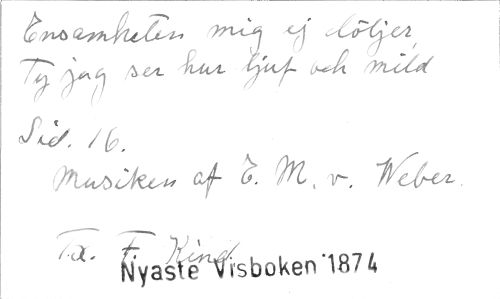 Ensamheten mig ej döljer,
Ty jag ser hur ljuf och mild
Sid. 16.
Musiken af C. M. v. Weber.
Tx. F. Kind
Nyaste Visboken 1874